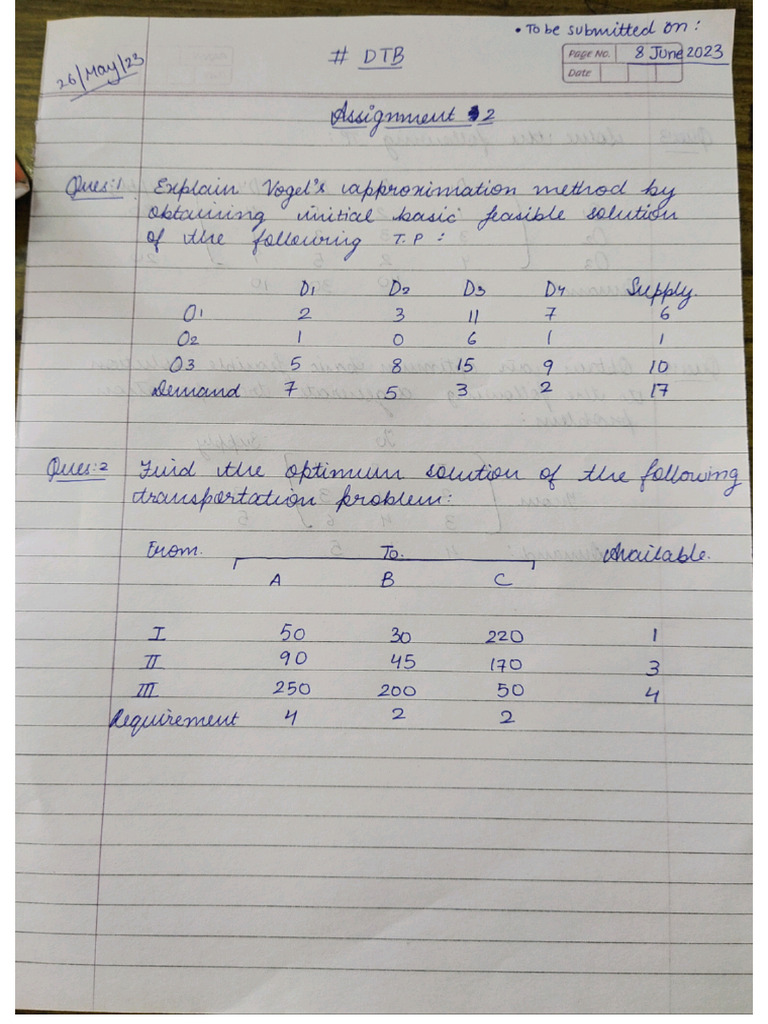 • To be submitted on :
26/May/23
# DTB
Page No. 8 June 2023
Date
Assignment 2
Ques:1 Explain Vogel's approximation method by
obtaining initial basic feasible solution
of the following T.P :
D1 D2 D3 D4 Supply.
O1 2 3 11 7 6
O2 1 0 6 1 1
O3 5 8 15 9 10
Demand 7 5 3 2 17
Ques:2 Find the optimum solution of the following
transportation problem:
From. To. Available.
A B C
I 50 30 220 1
II 90 45 170 3
III 250 200 50 4
Requirement 4 2 2